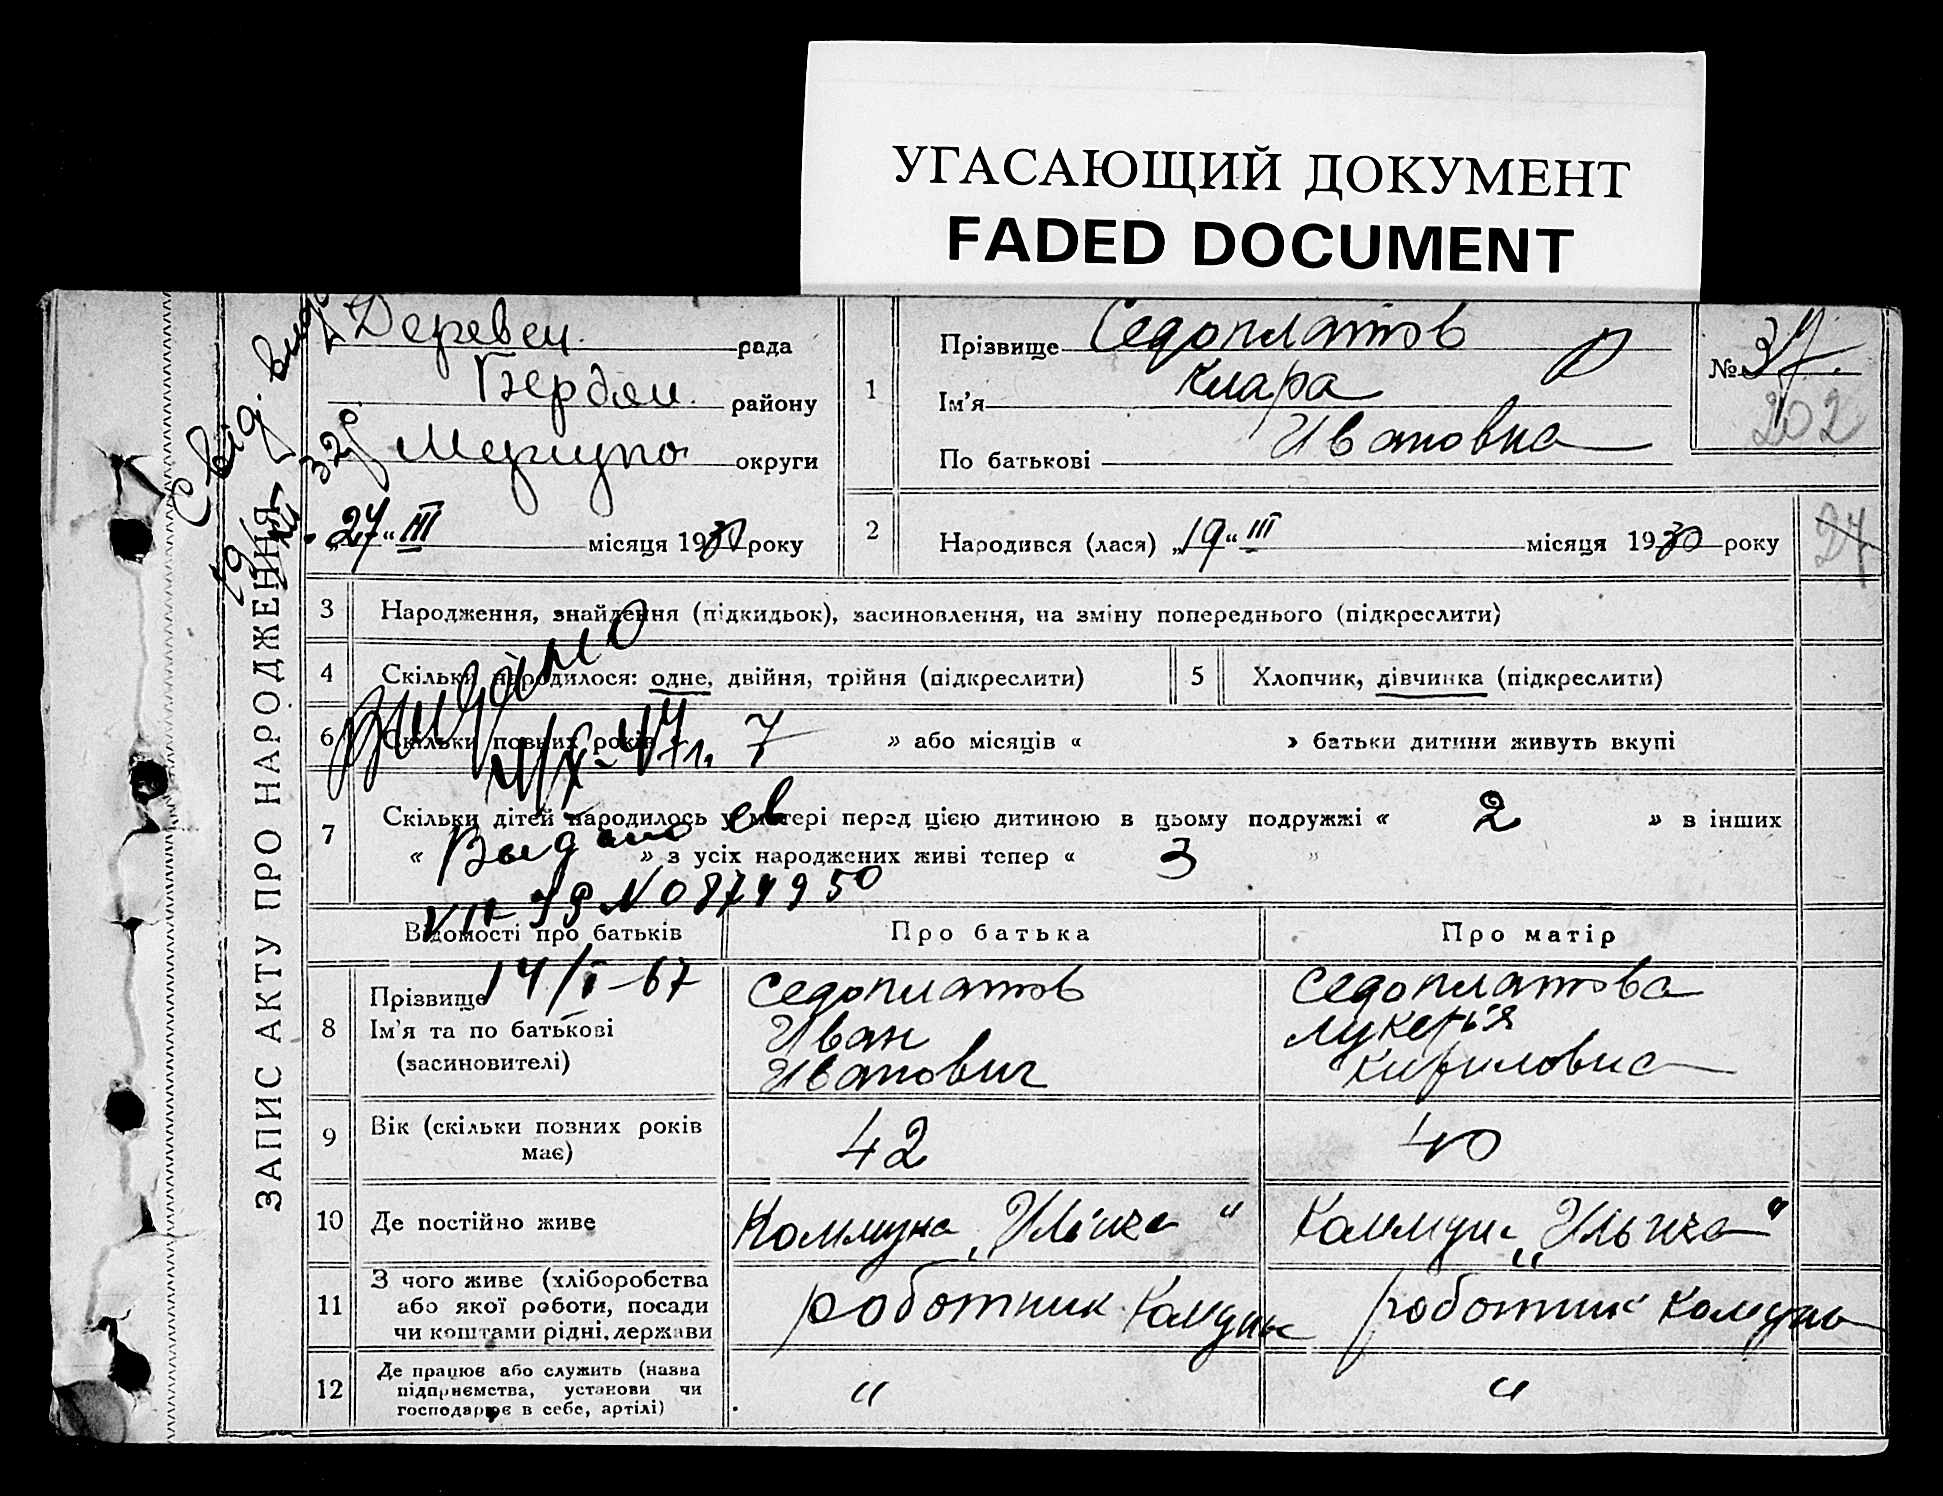 УГАСАЮЩИЙ ДОКУМЕНТ
FADED DOCUMENT
ЗАПИС АКТУ ПРО НАРОДЖЕННЯ
Свід. вид.
Деревец. рада
Бердян. району
округи
„27“ III місяця 1930 року
1
Прізвище Седоплатов
Ім’я Клара
По батькові Ивановна
№ 37.
202
2
Народився (лася) „19“ III місяця 1930 року
27
3 Народження, знайдення (підкидьок), засиновлення, на зміну попереднього (підкреслити)
4 Скільки народилося: одне, двійня, трійня (підкреслити)
5 Хлопчик, дівчинка (підкреслити)
Видано
6 Скільки повних років « 7 » або місяців « » батьки дитини живуть вкупі
7 Скільки дітей народилось у матері перед цією дитиною в цьому подружжі « 2 » в інших
« » з усіх народжених живі тепер « 3 »
Выдано св
Відомості про батьків
Про батька
Про матір
14/I-67
8 Прізвище
Ім’я та по батькові
(засиновителі)
Седоплатов
Иван
Иванович
Седоплатова
Лукерья
Кириловна
9 Вік (скільки повних років має)
42
40
10 Де постійно живе
Коммуна „Ильича“
Коммуна „Ильича“
11 З чого живе (хліборобства
або якої роботи, посади
чи коштами рідні, держави
роботник Комуны
роботник Комуны
12 Де працює або служить (назва
підприємства, установи чи
господарює в себе, артілі)
“
“